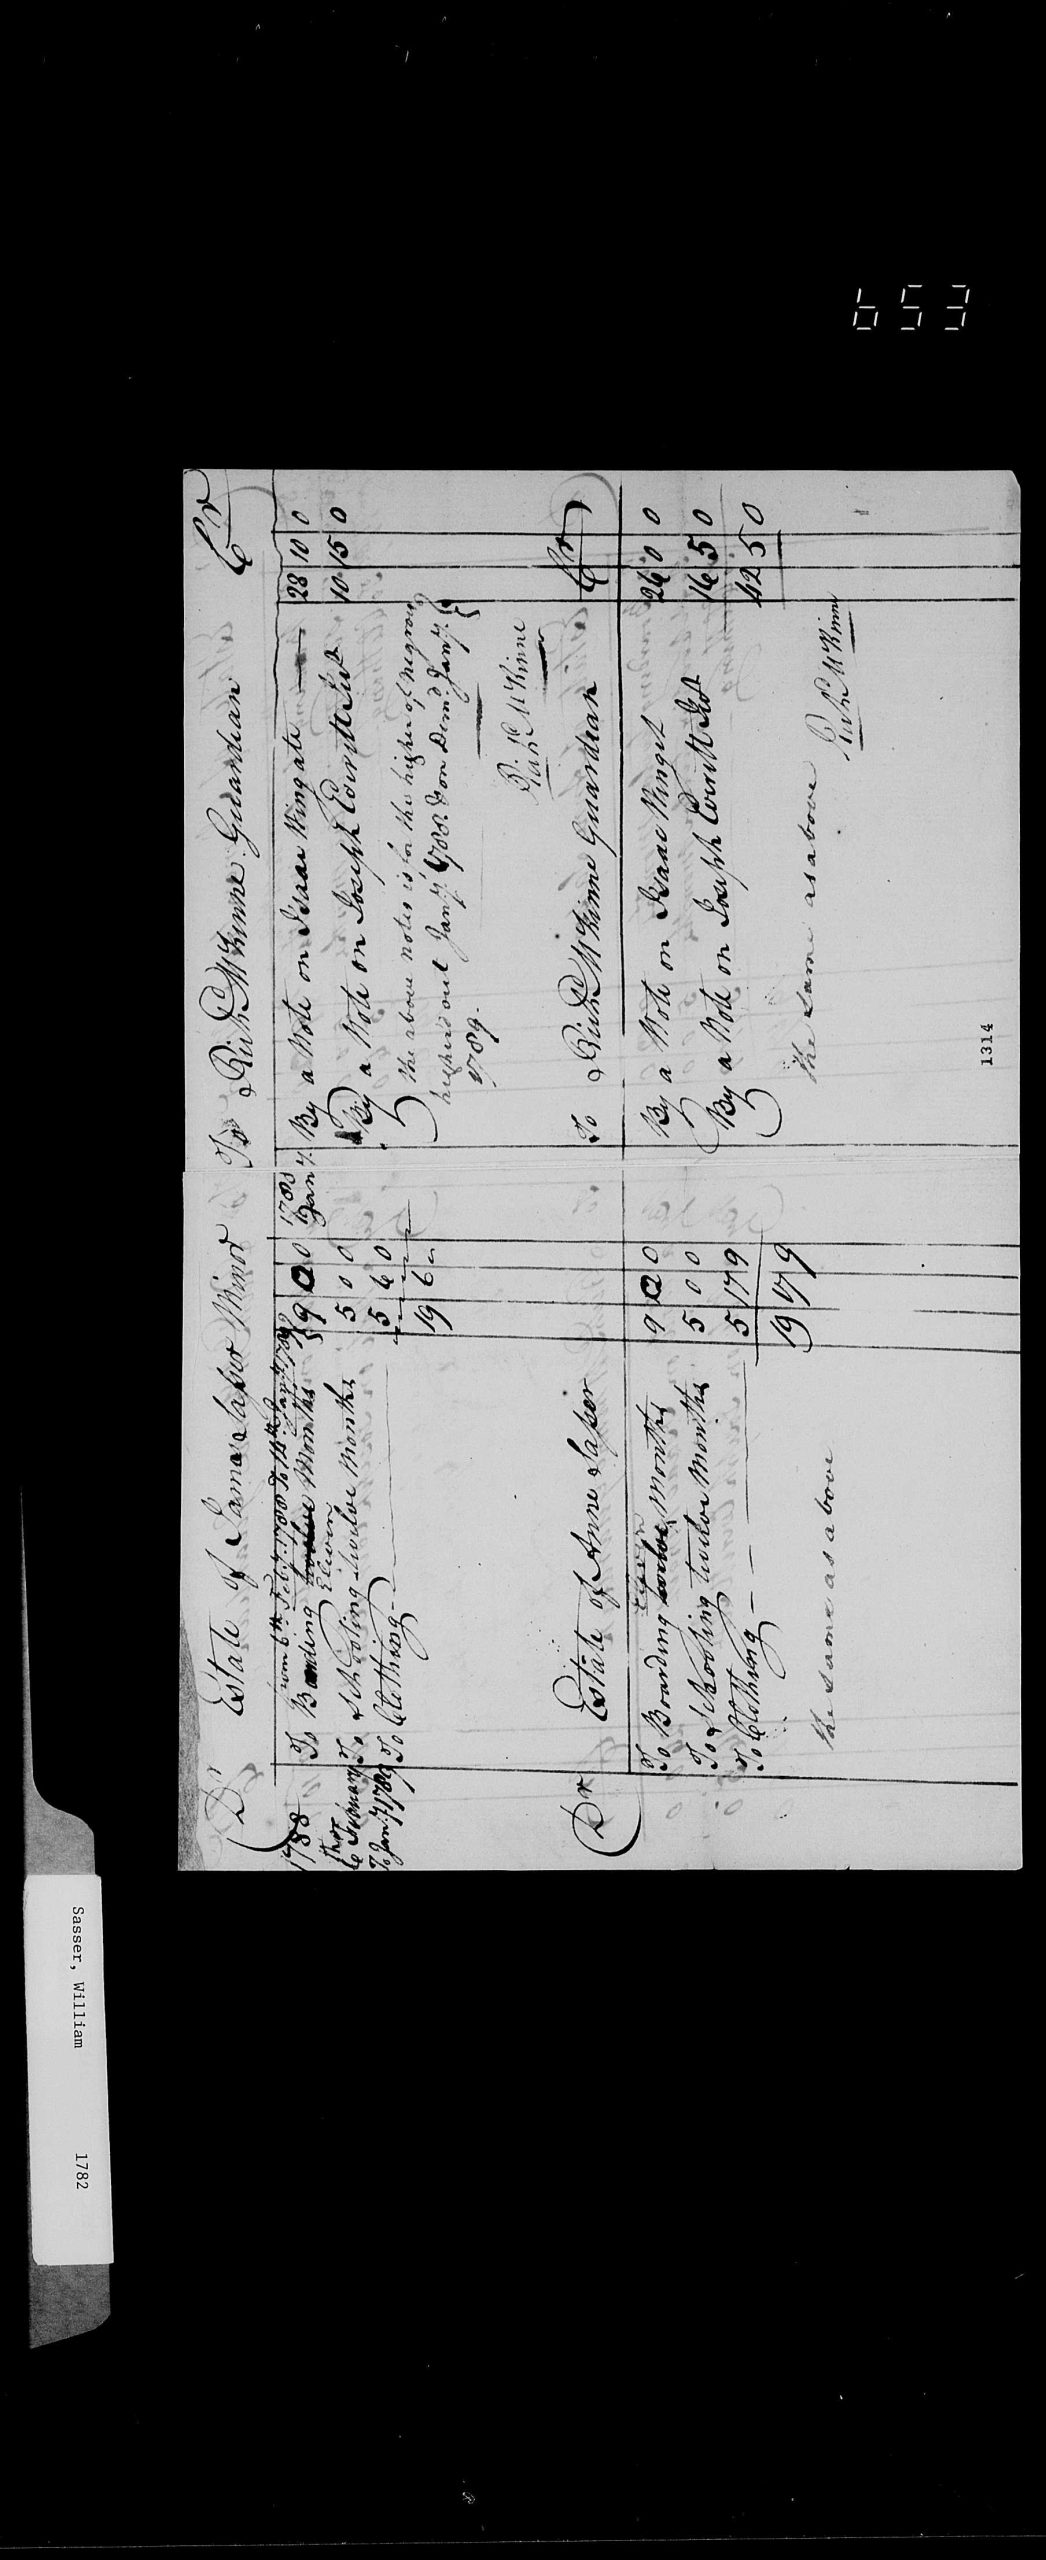 653
Dr Estate of James Saser Minor To Richd. McKinne Guardian Cr
from 6th Feby. 1788 To 14th Jany. 1789
1788 To Boarding twelve Months 9 0 0
Eleven
6 February To Schooling twelve Months 5 0 0
To Jany. 1789 To Clothing 5 6 0
19 6
1788
Jany. By a Note on Isaac Wingate 28 10 0
By a Note on Joseph Everitt Sr 10 15 0
the above notes is for the higher of Negroes
highered out Jany. 1788 & on Demd. Jany.
1789.
Richd. McKinne
Dr Estate of Anne Saser To Richd. McKinne Guardian Cr
eleven
To Boarding twelve Months 9 0 0
To Schooling twelve Months 5 0 0
To Clothing 5 17 9
19 17 9
the same as above
By a Note on Isaac Winget 26 0 0
By a Note on Joseph Everitt 16 5 0
42 5 0
the same as above
Richd. McKinne
1314
Sasser, William 1782